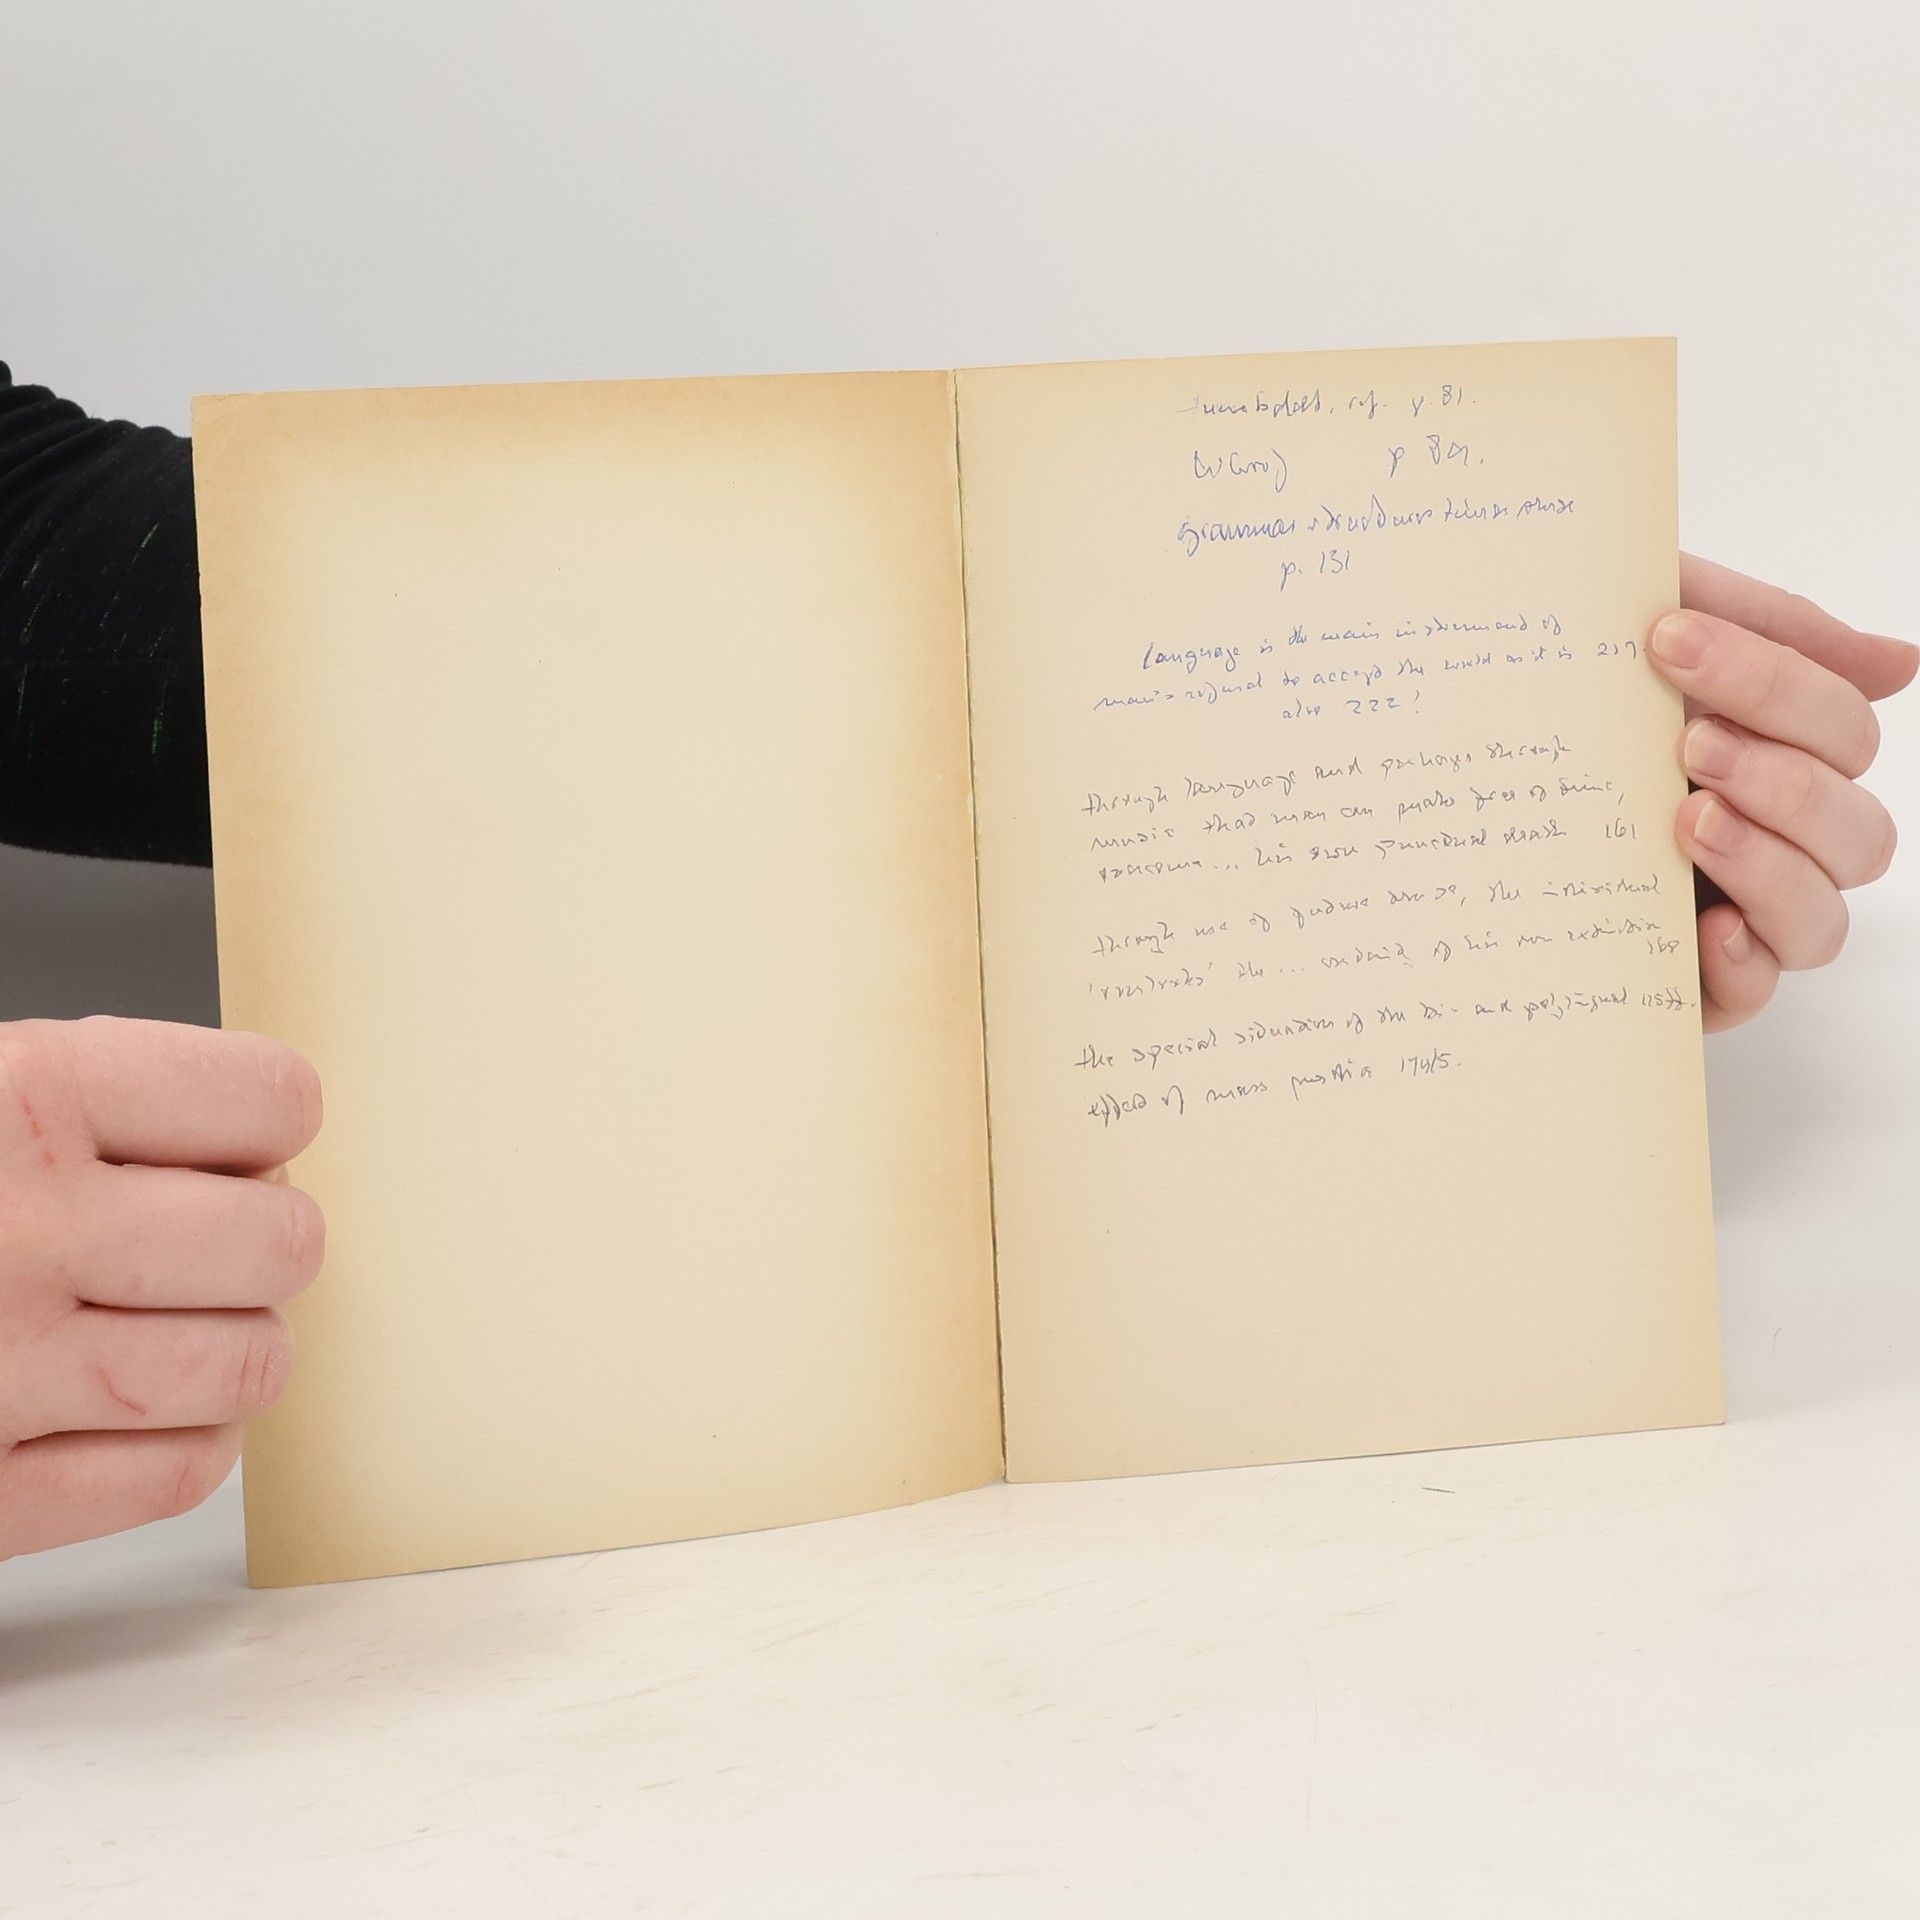 Humboldt, ref. p. 81.
Whorf p 89.
Grammar structures time sense
p. 131
Language is the main instrument of
man's refusal to accept the world as it is 217.
also 222!
through language and perhaps through
music that man can make free of time,
his own punctual death 161
through use of future tense, the individual
'overlooks' the ... certainty of his own extinction
168
the special situation of the bi- and polylingual 125ff.
effect of mass media 174/5.